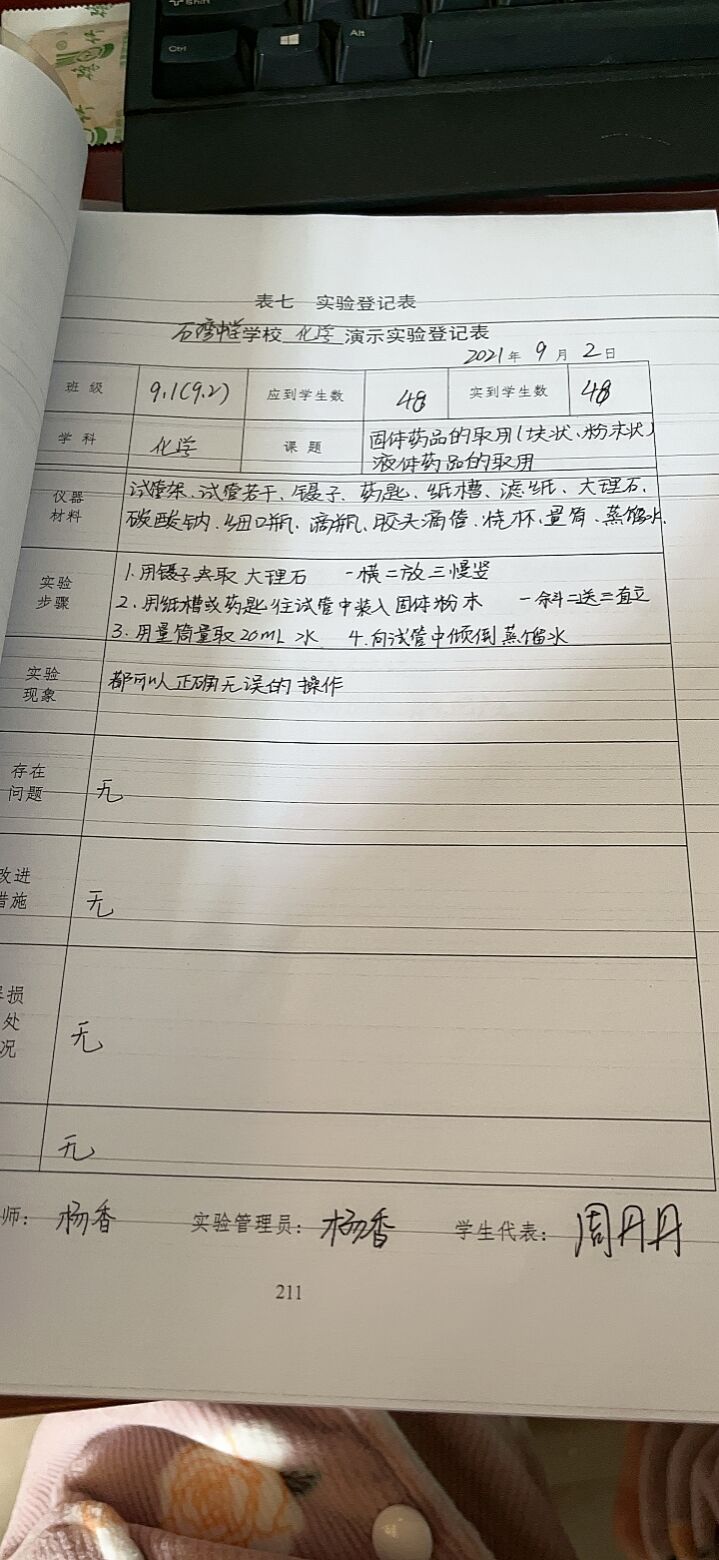 Shift
Ctrl
Alt
表七 实验登记表
石湾中学学校 化学 演示实验登记表
2021年 9 月 2 日
班 级 9.1(9.2) 应到学生数 48 实到学生数 48
学 科 化学 课 题 固体药品的取用(块状、粉末状)
液体药品的取用
仪器 试管架、试管若干、镊子、药匙、纸槽、滤纸、大理石、
材料 碳酸钠、细口瓶、滴瓶、胶头滴管、烧杯、量筒、蒸馏水.
1.用镊子夹取 大理石 一横二放三慢竖
实验
步骤 2.用纸槽或药匙往试管中装入固体粉末 一斜二送三直立
3.用量筒量取20mL 水 4.向试管中倾倒蒸馏水
实验 都可以正确无误的操作
现象
存在
问题 无
改进
措施 无
损
处 无
况
无
师: 杨香 实验管理员: 杨香 学生代表: 周丹丹
211